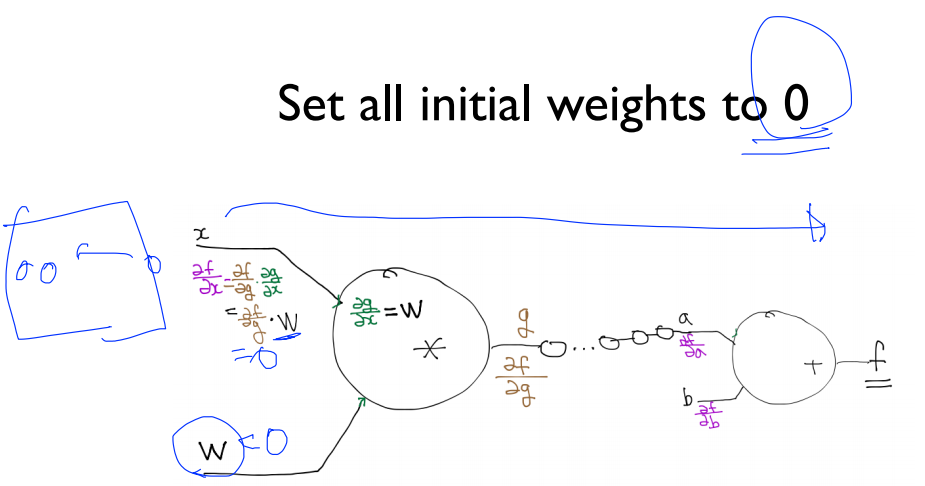 Set all initial weights to 0
x
∂f/∂x = ∂f/∂g · ∂g/∂x
= ∂f/∂g · W
= 0
∂g/∂x = W
*
g
∂f/∂g
...
a
∂f/∂a
b
∂f/∂b
+
f
W = 0
0 0
0